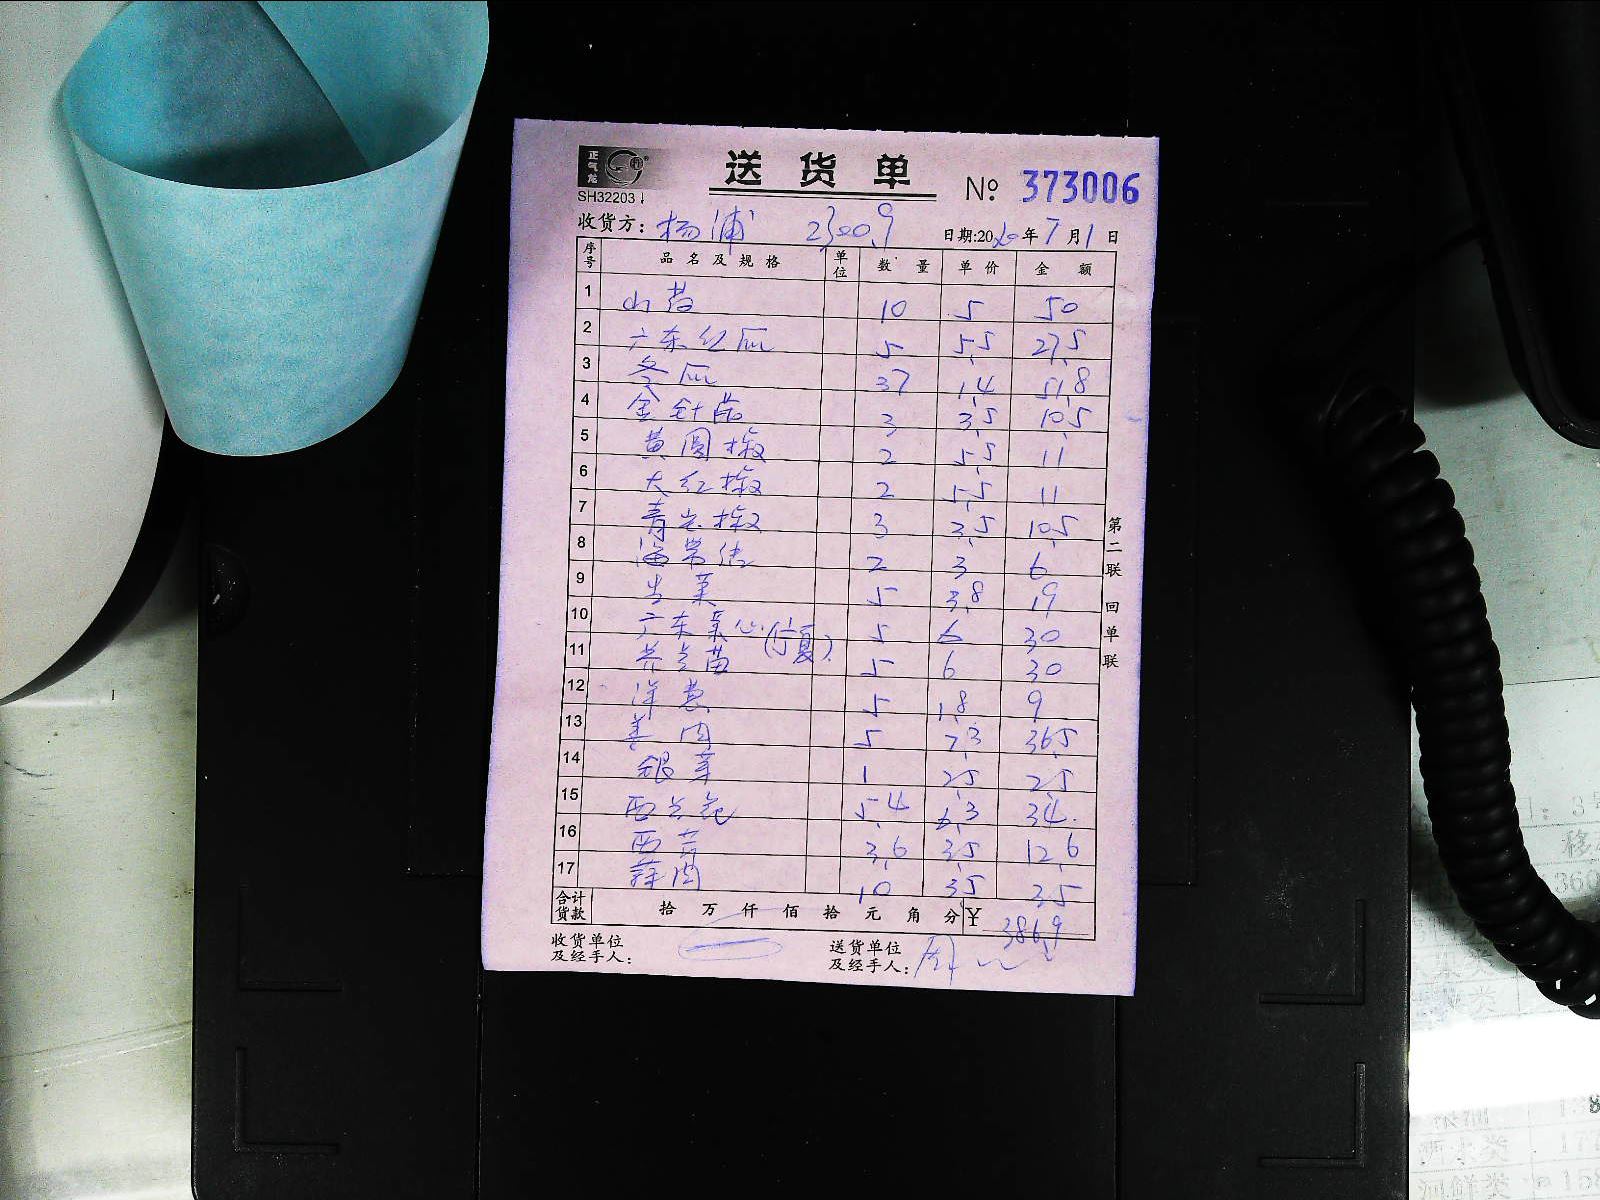 正气龙
送货单 № 373006
SH32203
收货方: 杨浦 2300.9 日期:2020年7月1日
序号 品名及规格 单位 数量 单价 金额
1 山药 10 5 50
2 广东红瓜 5 5.5 27.5
3 冬瓜 37 1.4 51.8
4 金针菇 3 3.5 10.5
5 黄圆椒 2 5.5 11
6 大红椒 2 5.5 11
7 青尖椒 3 3.5 10.5
8 海带结 2 3 6
9 生菜 5 3.8 19
10 广东菜心(宁夏) 5 6 30
11 苗 5 6 30
12 洋葱 5 1.8 9
13 姜肉 5 7.3 36.5
14 银芽 1 2.5 2.5
15 西兰花 5.4 6.3 34.
16 西芹 3.6 3.5 12.6
17 蒜肉 10 3.5 35
合计货款 拾万仟佰拾元角分 ¥ 386.9
收货单位及经手人:
送货单位及经手人: 周
第二联 回单联